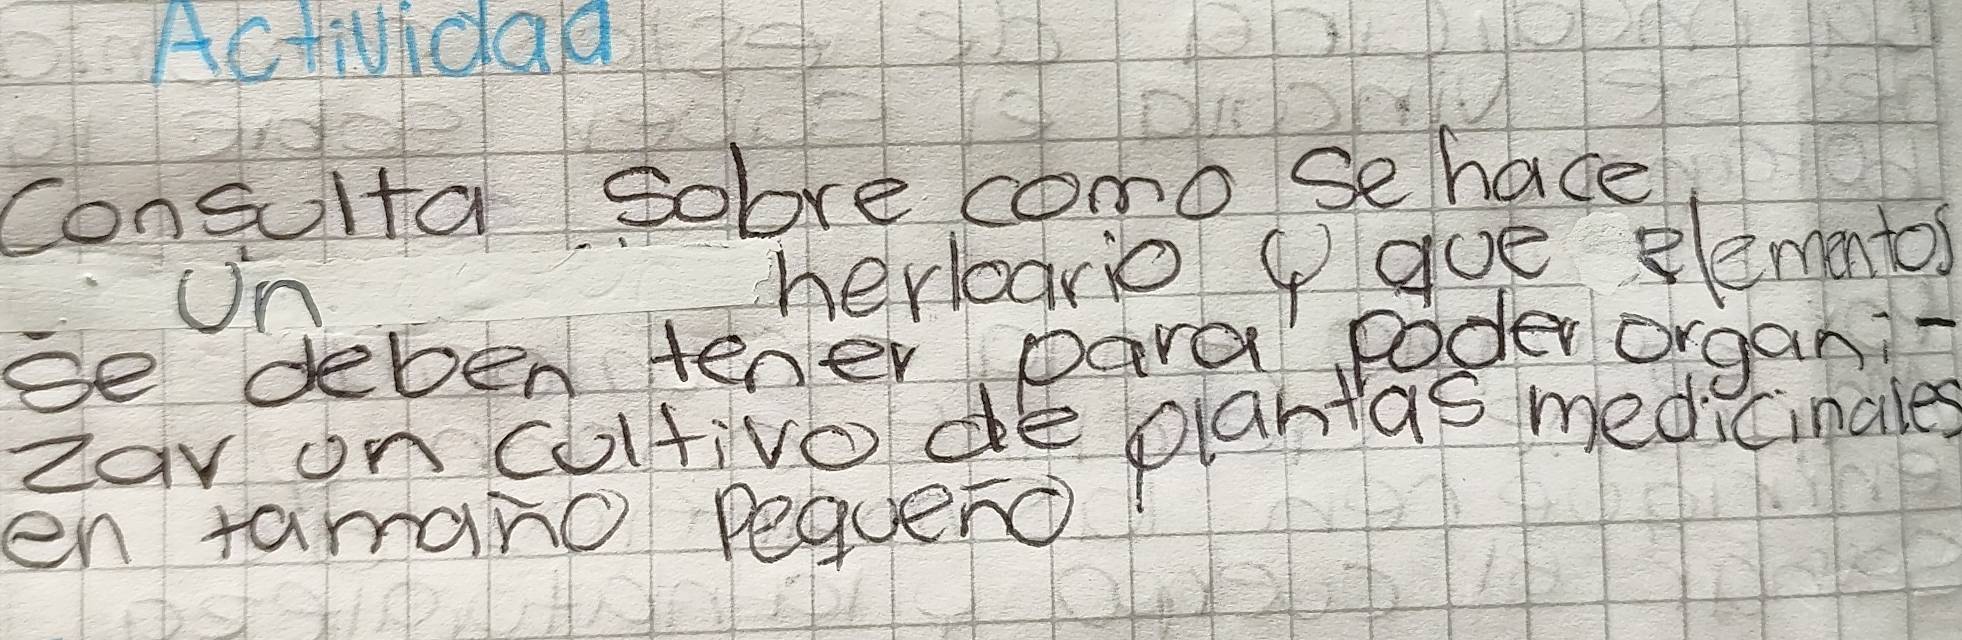 Actividad
Consulta sobre como se hace
un herbario y que elementos
se deben tener para poder organi-
zar un cultivo de plantas medicinales
en tamaño pequeño